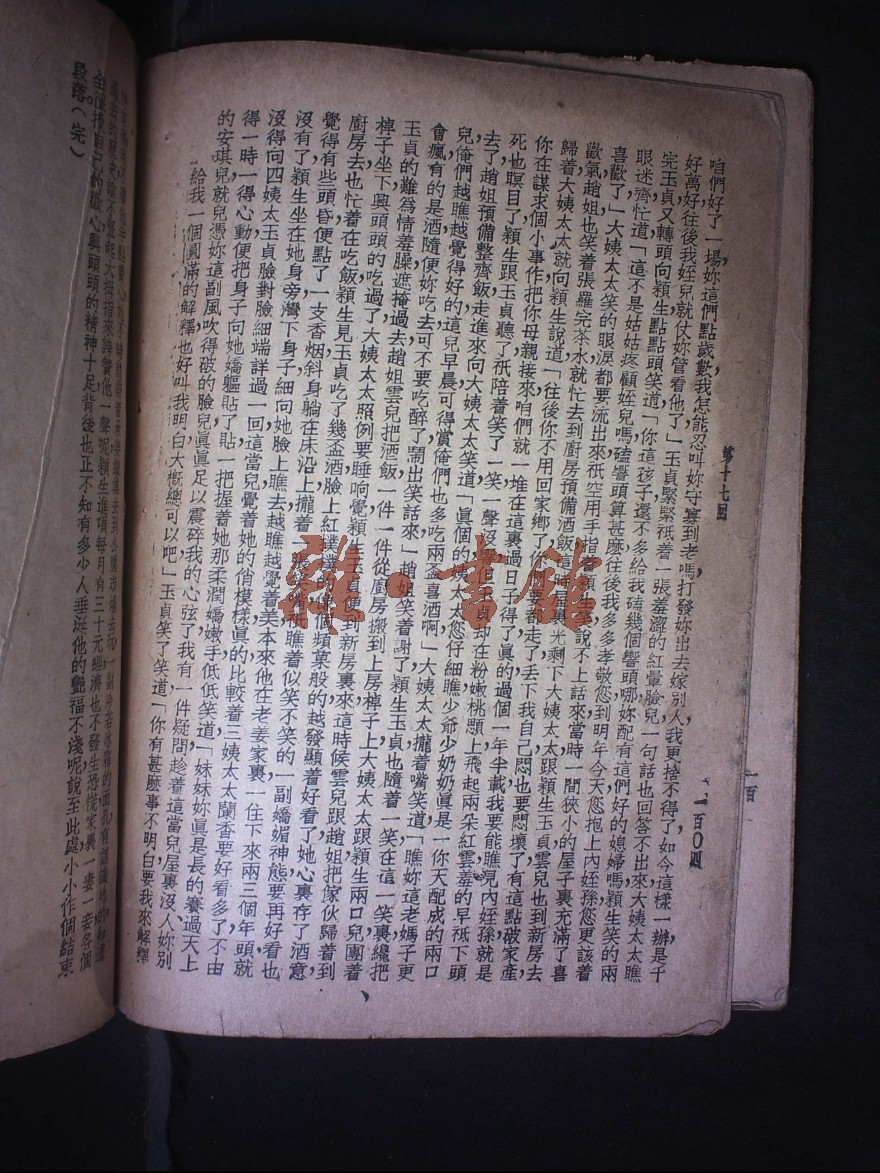 第十七回
一百〇四
咱們好了一場，妳這們點歲數，我怎能忍叫妳守寡到老嗎，打發妳出去嫁別人，我更捨不得了，如今這樣一辦，是千
好萬好，往後我姪兒就仗妳管看他了」玉貞緊緊袛着一張羞澀的紅暈臉兒，一句話也回答不出來，大姨太太瞧
完玉貞，又轉頭向穎生點點頭笑道「你這孩子還不多給我磕幾個響頭哪，妳配有這們好的媳婦嗎，穎生笑的兩
眼迷齊，忙道「這不是姑姑疼顧姪兒嗎，磕響頭算甚麽，往後我多多孝敬您，到明年今天您抱上內姪孫，您更該着
喜歡了」大姨太太笑的眼淚都要流出來，袛空用手指着穎生，笑說不上話來，當時一間狹小的屋子裏，充滿了喜
歡氣，趙姐也笑着張羅完茶水，就忙去到廚房預備酒飯，這時屋裏光剩下大姨太太跟穎生玉貞，雲兒也到新房去
歸着，大姨太太就向穎生說道「往後你不用回家鄉了，你們要都走了，丢下我自己，悶也要悶壞了，有這點破家產，
你在謀求個小事作，把你母親接來，咱們就一堆在這裏過日子得了，眞的過個一年半載，我要能瞧見內姪孫，就是
死也瞑目了，穎生跟玉貞聽了，袛陪着笑了一笑，一聲沒響，但玉貞却在粉嫩桃顋上飛起兩朵紅雲，羞的早袛下頭
去了，趙姐預備整齊飯，走進來向大姨太太笑道「眞個的姨太太您仔細瞧少爺少奶奶，眞是一你天配成的兩口
兒，俺們越瞧越覺得好的，這兒早晨可得賞俺們也多吃兩盃喜酒啊」大姨太太攏着嘴笑道「瞧妳這老媽子更
會瘋，有的是酒，隨便妳吃去，可不要吃醉了，鬧出笑話來」趙姐笑着謝了，穎生玉貞也隨着一笑，在這一笑裏，纔把
玉貞的難爲情羞臊遮掩過去，趙姐雲兒把酒飯一件一件從廚房搬到上房棹子上，大姨太太跟穎生兩口兒團着
棹子坐下，興頭頭的吃過了，大姨太太照例要睡响覺，穎生玉貞便到新房裏來，這時候雲兒跟趙姐把傢伙歸着到
廚房去，也忙着在吃飯，穎生見玉貞吃了幾盃酒，臉上紅噗噗的，像個頻菓般的越發顯着好看了，她心裏存了酒意，
覺得有些頭昏，便點了一支香烟，斜身躺在床沿上，攏着一張笑臉，袛瞧着似笑不笑的一副嬌媚神態，要再好看也
沒有了，穎生坐在她身旁，灣下身子細向她臉上瞧去，越瞧越覺着美，本來他在老姜家裏一住下來，兩三個年頭，就
沒得向四姨太玉貞臉對臉細端詳過一回，這當兒覺着她的俏模樣眞的比較着三姨太太蘭香要好看多了，不由
得一時一得心動，便把身子向她嬌軀貼了貼，一把握着她那柔潤嬌嫩手，低低笑道「妹妹，妳眞是長的賽過天上
的安琪兒，就憑妳這副風吹得破的臉兒，眞眞足以震碎我的心弦了，我有一件疑問，趁着這當兒屋裏沒人，妳別
給我一個圓滿的解釋，也好叫我明白大槪總可以吧」玉貞笑了笑道「你有甚麽事不明白，要我來解釋
一聲呢，穎生進項每月有三十元，經濟也不發生恐慌，家裏一妻一妾，各個
興頭頭的，精神十足，背後也正不知有多少人垂涎他的艷福不淺呢，說至此處，小小作個結束
段落。（完）
一百
雜·書館